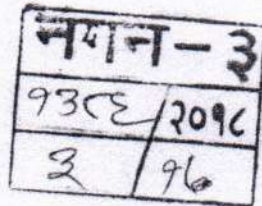 नगन - ३
१३८६/२०१८
३/१७